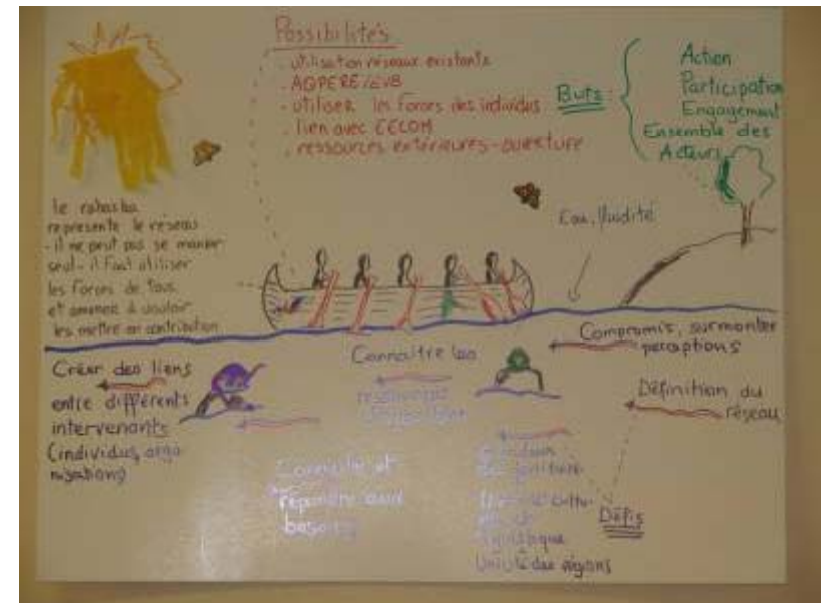 Possibilités
. utilisation réseaux existants
. AGPERE/EVB
. utiliser les forces des individus
. lien avec EECOM
. ressources extérieures - ouverture
Buts:
Action
Participation
Engagement
Ensemble des
Acteurs
le rabaska
représente le réseau
- il ne peut pas se manier
seul - il faut utiliser
les forces de tous
et amener à vouloir
les mettre en contribution
Eau, fluidité
Compromis, surmonter
perceptions
Connaître les
ressources
disponibles
Créer des liens
entre différents
intervenants
(individus, orga-
nisations)
Définition du
réseau
Connaître et
répondre aux
besoins
linguistique
Unicité des régions
Défis